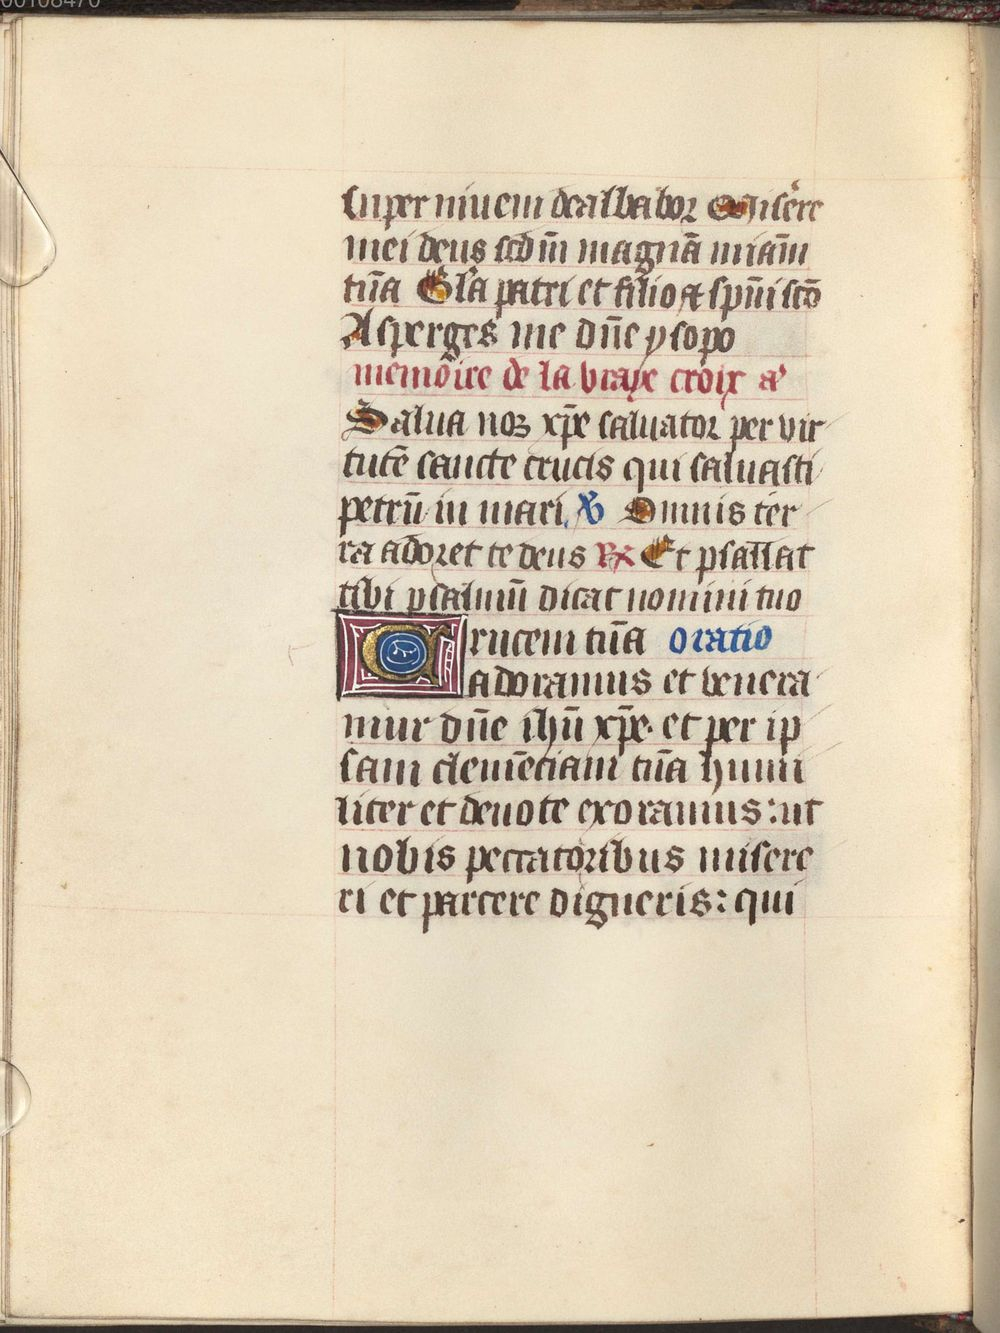 00108470
super niuem dealbabor Misere
mei deus scdm̄ magnā miā̄m
tūa Glā patri et filio et spūi scō
Asperges me dn̄e ysopo
memoire de la vraye croix aʼ
Salua nos xp̄e saluator per vir
tutē sancte crucis qui saluasti
petrū in mari. ℣ Omnis ter
ra adoret te deus ℟ Et psallat
tibi psalmū dicat nomini tuo
Crucem tūa oratio
adoramus et venera
mur dn̄e ihū xp̄e. et per ip
sam clemēciam tūa humi
liter et deuote exoramus: ut
nobis peccatoribus misere
ri et parcere digneris: qui